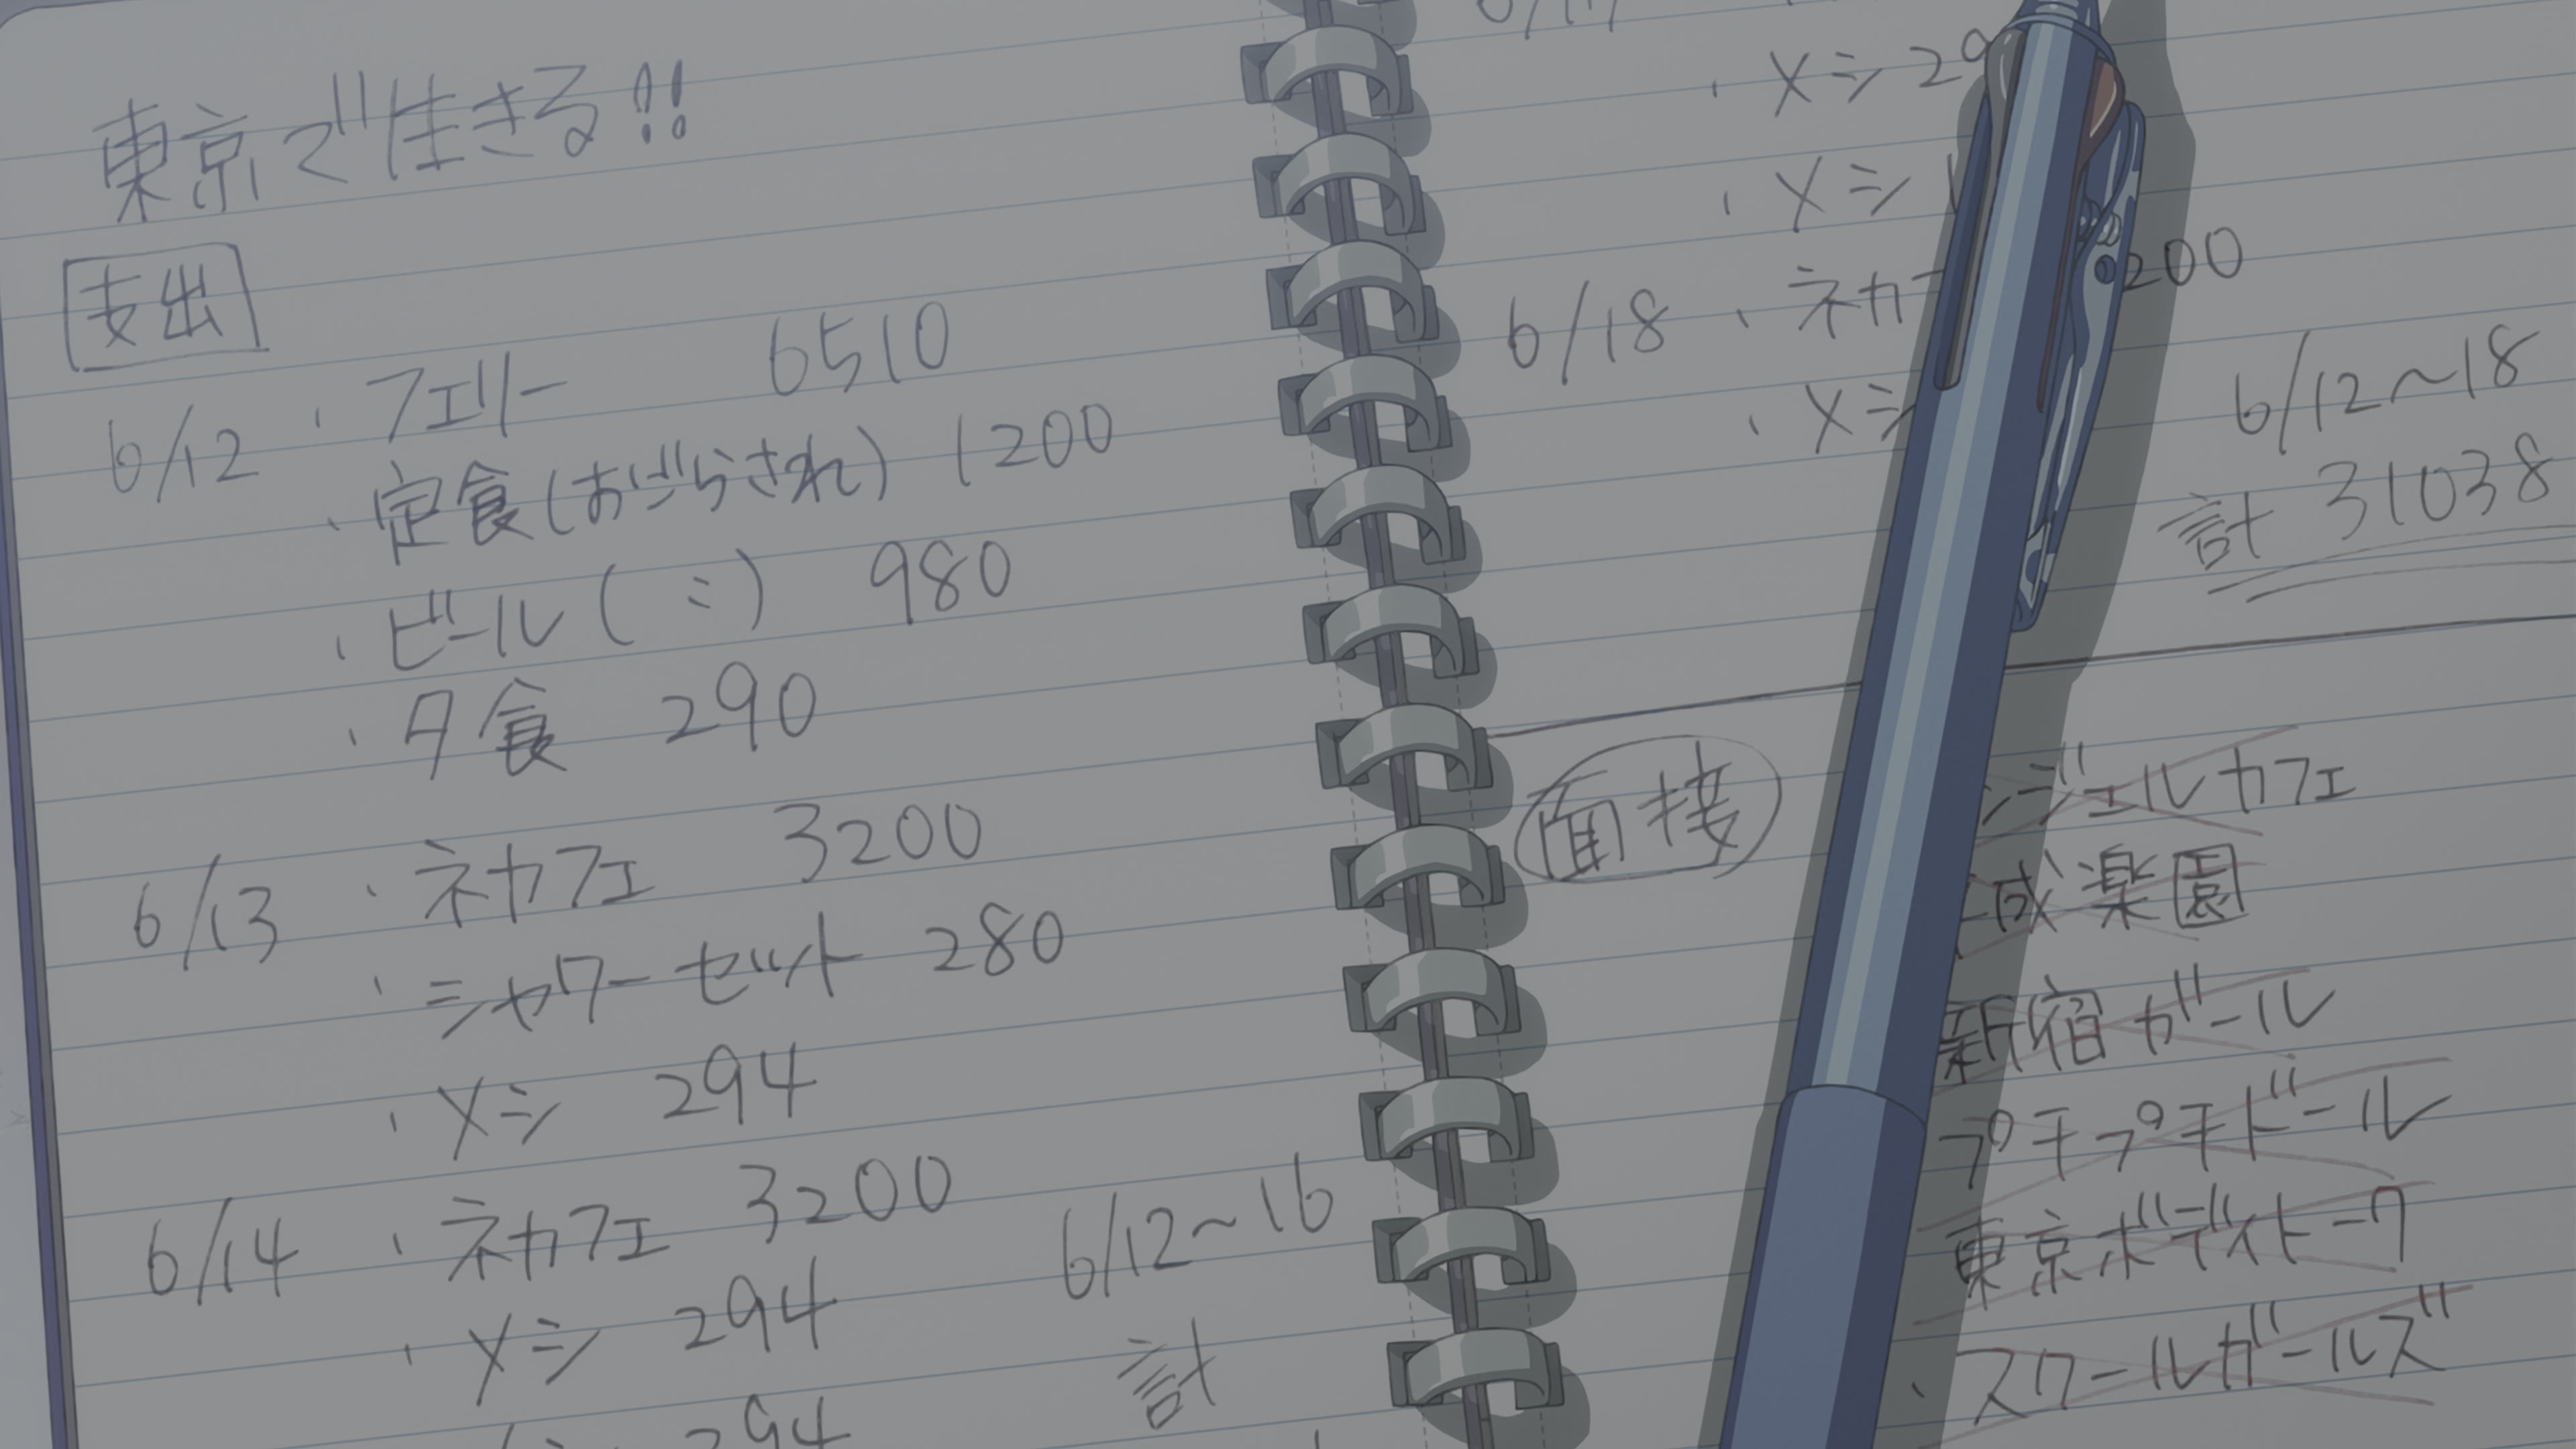 東京で生きる!!
支出
6/12 ・フェリー 6510
・定食(おごらされ) 1200
・ビール( 〃 ) 980
・夕食 290
6/13 ・ネカフェ 3200
・シャワーセット 280
・メシ 294
6/14 ・ネカフェ 3200
・メシ 294
294
6/12〜16
計
・メシ 29
・メシ 1
6/18 ・ネカフ 200
・メシ
6/12〜18
計 31038
面接
ジェルカフェ
成楽園
新宿ガール
プチプチドール
東京ボディトーク
・スクールガールズ